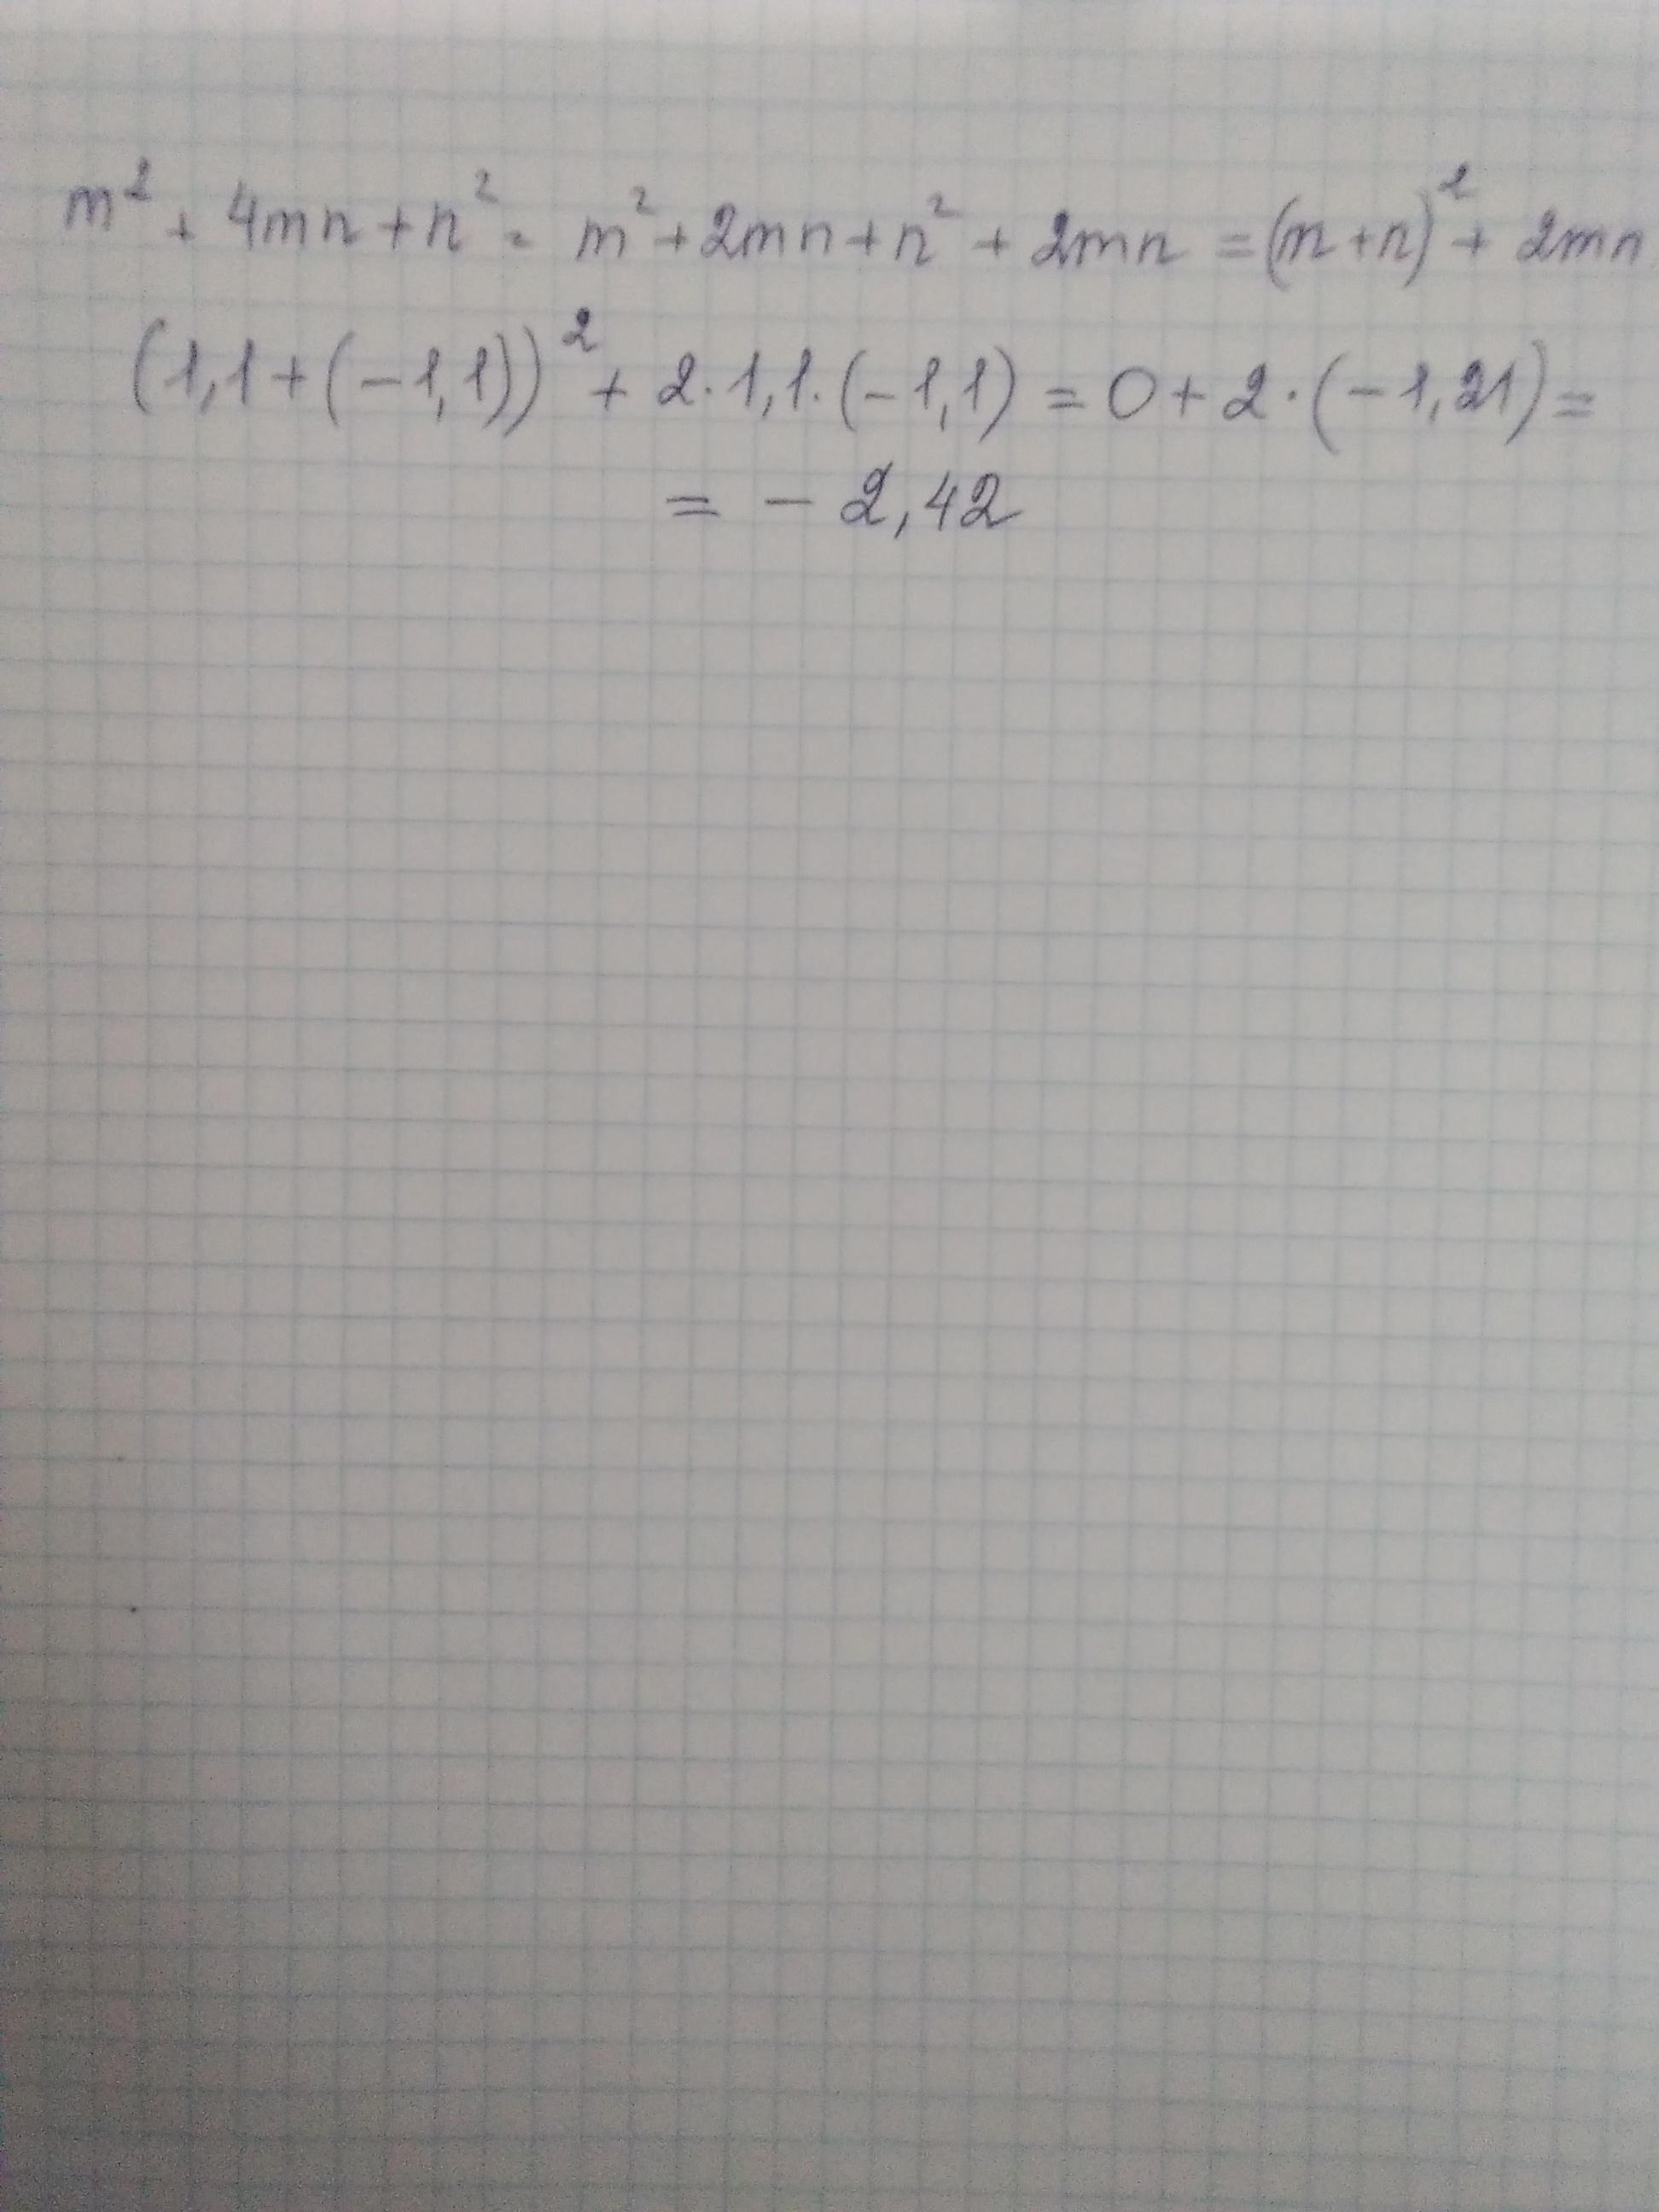 m² + 4mn + n² = m² + 2mn + n² + 2mn = (m + n)² + 2mn
(1,1 + (-1,1))² + 2·1,1·(-1,1) = 0 + 2·(-1,21) =
= - 2,42